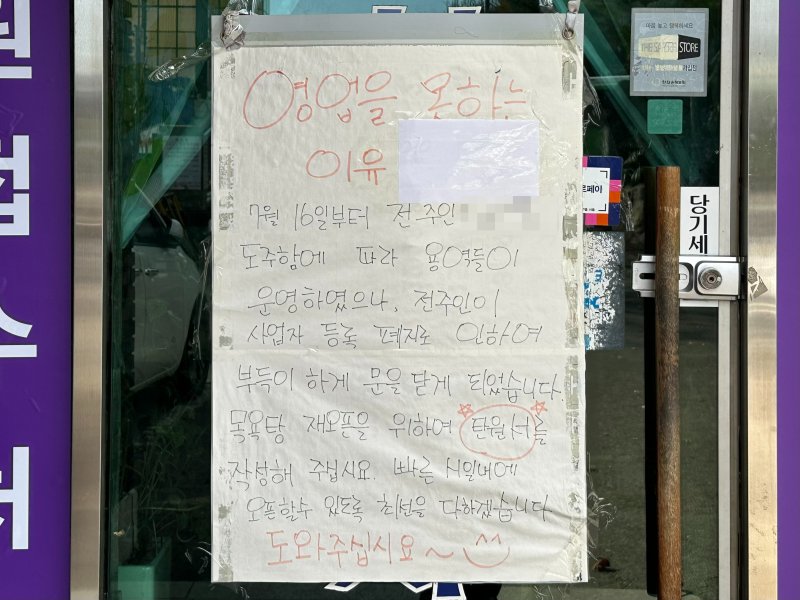 영업을 못하는
이유
7월 16일부터 전주인
도주함에 따라 용역들이
운영하였으나, 전주인이
사업자 등록 폐지로 인하여
부득이 하게 문을 닫게 되었습니다.
목욕탕 재오픈을 위하여 탄원서를
작성해 주십시요. 빠른 시일내에
오픈할수 있도록 최선을 다하겠습니다
도와주십시요~^^
마음 놓고 행복하세요
STORE
당기세
페이
접
수